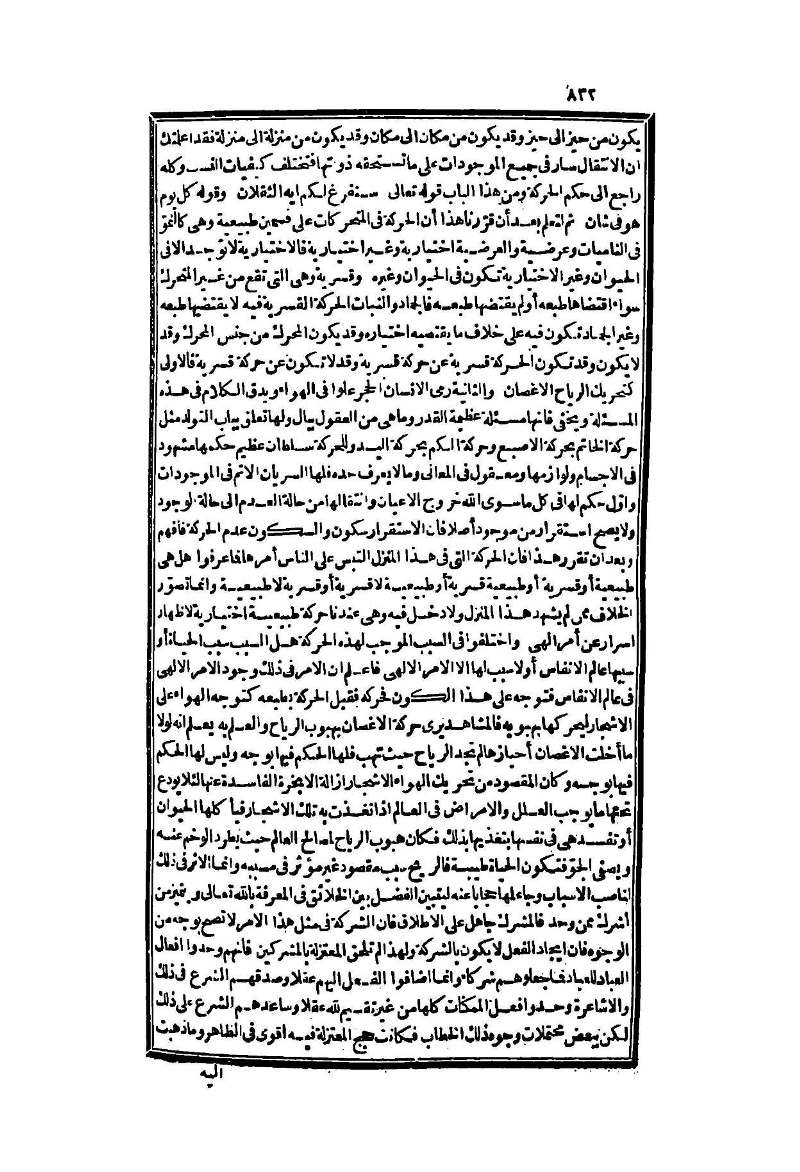 ٨٣٢
يكون من حيز الى حيز وقد يكون من مكان الى مكان وقد يكون من منزلة الى منزلة فقد اعلمتك
ان الانتقال سار فى جميع الموجودات على ما تستحقه ذوتها فتختلف كيفيات النسب وكله
راجع الى حكم الحركة ومن هذا الباب قوله تعالى سنفرغ لكم ايه الثقلان وقوله كل يوم
هو فى شان ثم لتعلم بعد أن قررنا هذا أن الحركة فى المتحركات على قسمين طبيعية وهى كالنمو
فى الناميات وعرضية والعرضية اختيارية وغير اختيارية فالاختيارية لا توجد الا فى
الحيوان وغير الاختيارية تكون فى الحيوان وغيره وقسرية وهى التى تقع من غير المتحرك
سواء اقتضاها طبعه أو لم يقتضها طبعه فالجاد والنبات الحركة القسرية فيه لا يقتضيها طبعه
وغير الجماد تكون فيه على خلاف ما يقتضيه اختياره وقد يكون المحرك من جنس المحرك وقد
لا يكون وقد تكون الحركة قسرية عن حركة قسرية وقد لا تكون عن حركة قسرية فالاولى
كتحريك الرياح الاغصان والثانية رمى الانسان الحجر علوا فى الهواء ويدق الكلام فى هذه
المسئلة ويخفى فانها مسئلة عظيمة القدر وماهى من العقول ببال ولها تعلق بباب التولد مثل
حركة الخاتم بحركة الاصبع وحركة الكم بحركة اليد وللحركة سلطان عظيم حكمها مشهود
فى الاجسام ولوازمها ومعقول فى المعانى وما لا يعرف حده فلها السريان الاتم فى الموجودات
واول حكم لها فى كل ما سوى الله خروج الاعيان وانتقالها من حالة العدم الى حالة الوجود
ولا يصح استقرار من موجود أصلا فان الاستقرار سكون والسكون عدم الحركة فافهم
وبعد ان تقرر هذا فان الحركة التى فى هذا المنزل التبس على الناس أمرها فما عرفوا هل هى
طبيعية أو قسرية أو طبيعية قسرية أو طبيعية لا قسرية أو قسرية لا طبيعية وانما تصور
الخلاف ممن لم يشهد هذا المنزل ولا دخل فيه وهى عندنا حركة طبيعية اختيارية لاظهار
اسرار عن أمر الهى واختلفوا فى السبب الموجب لهذه الحركة هل السبب سبب الحياة أو
سببها عالم الانفاس أو لا سبب لها الا الامر الالهى فاعلم ان الامر فى ذلك وجود الامر الالهى
فى عالم الانفاس فتوجه على هذا الكون فحركه فقبل الحركة بطبعه كتوجه الهواء على
الاشجار ليحركها بهبوبه فالمشاهد يرى حركة الاغصان بهبوب الرياح والعلم به يعلم انه لولا
ما أخلت الاغصان أحيازها لم تجد الرياح حيث تهب فلها الحكم فيها بوجه وليس لها الحكم
فيها بوجه وكان المقصود من تحريك الهواء الاشجار ازالة الابخرة الفاسدة عنها لئلا يودع
تحتها ما يوجب العلل والامراض فى العالم اذا تغذت به تلك الاشجار فيأكلها الحيوان
أو تفسد هى فى نفسها بتغذيها بذلك فكان هبوب الرياح لمصالح العالم حيث يطرد الوخم عنه
ويصفى الجو فتكون الحياة طيبة فالريح سبب مقصود غير مؤثر فى مسببه وانما الاثر فى ذلك
لناصب الاسباب وجاعلها حجابا عنه ليتبين الفضل بين الخلائق فى المعرفة بالله تعالى ويتميز من
أشرك ممن وحد فالمشرك جاهل على الاطلاق فان الشركة فى مثل هذا الامر لا تصح بوجه من
الوجوه فان ايجاد الفعل لا يكون بالشركة ولهذا لم تلحق المعتزلة بالمشركين فانهم وحدوا افعال
العباد للعباد فما جعلوهم شركاء وانما اضافوا الفعل اليهم عقلا وصدقهم الشرع فى ذلك
والاشاعرة وحدوا فعل الممكنات كلها من غير تقسيم لله عقلا وساعدهم الشرع على ذلك
لكن ببعض محتملات وجوه ذلك الخطاب فكانت حجج المعتزلة فيه اقوى فى الظاهر وما ذهبت
اليه